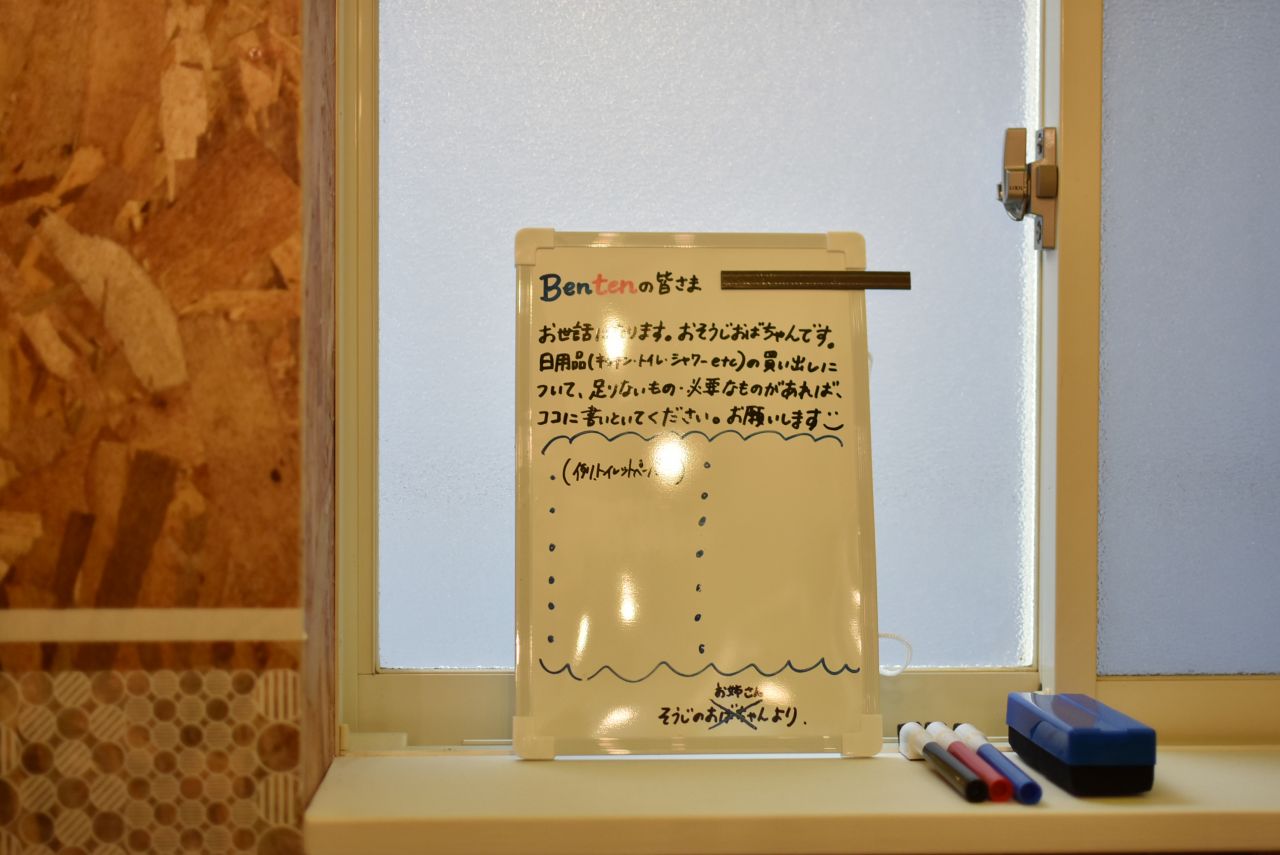 Bentenの皆さま
お世話になります。おそうじおばちゃんです。
日用品(キッチン・トイレ・シャワーetc)の買い出しに
ついて、足りないもの・必要なものがあれば、
ココに書いといてください。お願いします
・(例、トイレットペー
お姉さん
そうじのおばちゃんより.